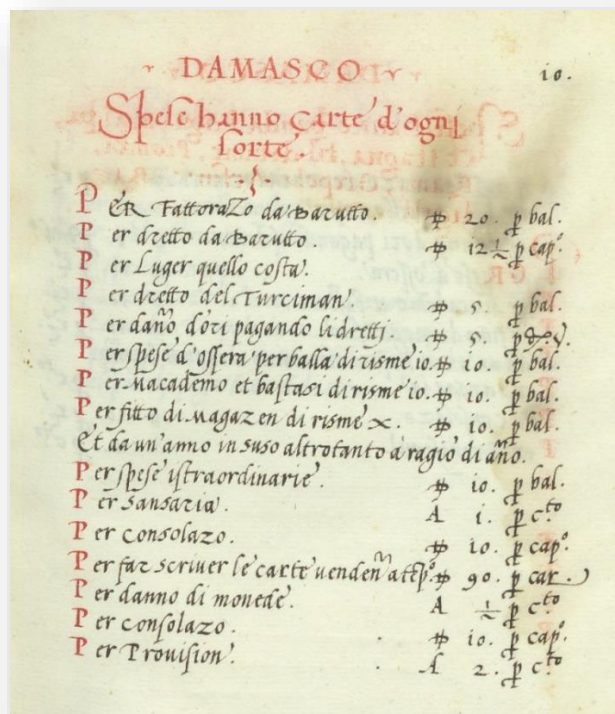 DAMASCO 10.
Spese hanno carte d'ogni
sorte.
PER Fattorazo da Barutto. 20. p bal.
Per dretto da Barutto. 12 ½ p cap.º
Per Luger quello costa.
Per dretto del Turciman. 5. p bal.
Per dañ̃o d'ori pagando li dretti. 5. p
Per spese d'ossera per balla di risme io. 10. p bal.
Per Macademo et bastasi di risme io. 10. p bal.
Per fitto di Magazen di risme x. 10. p bal.
Et da un'anno in suso altrotanto à ragiõ di año.
Per spese istraordinarie. 10. p bal.
Per Sansaria. A 1. p c.to
Per Consolazo. 10. p cap.º
Per far scriver le carte venden atẽpº. 90. p car.
Per danno di monede. A ½ p c.to
Per Consolazo. 10. p cap.º
Per Provision. A 2. p c.to